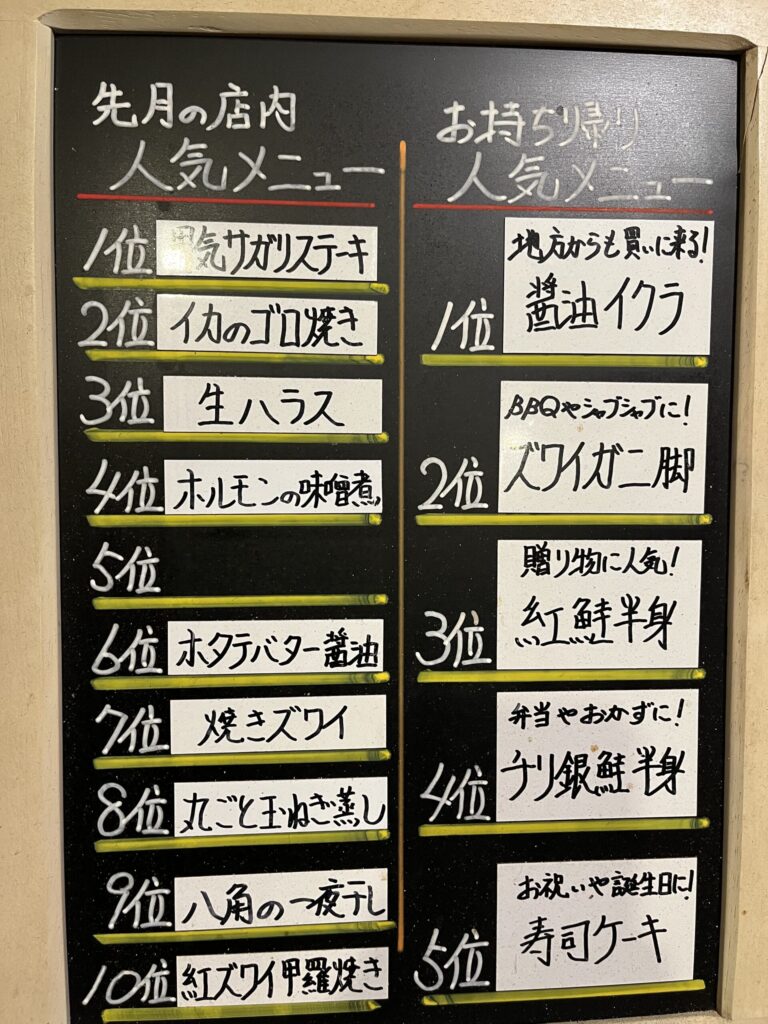 先月の店内
人気メニュー
1位 気サガリステーキ
2位 イカのゴロ焼き
3位 生ハラス
4位 ホルモンの味噌煮
5位
6位 ホタテバター醤油
7位 焼きズワイ
8位 丸ごと玉ねぎ蒸し
9位 八角の一夜干し
10位 紅ズワイ甲羅焼き
お持ち帰り
人気メニュー
地方からも買いに来る!
1位 醤油イクラ
BBQやシャブシャブに!
2位 ズワイガニ脚
贈り物に人気!
3位 紅鮭半身
弁当やおかずに!
4位 チリ銀鮭半身
お祝いや誕生日に!
5位 寿司ケーキ